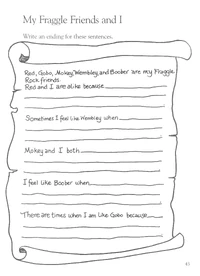 My Fraggle Friends and I
Write an ending for these sentences.
Red, Gobo, Mokey, Wembley, and Boober are my Fraggle
Rock friends.
Red and I are alike because
Sometimes I feel like Wembley when
Mokey and I both
I feel like Boober when
There are times when I am like Gobo because